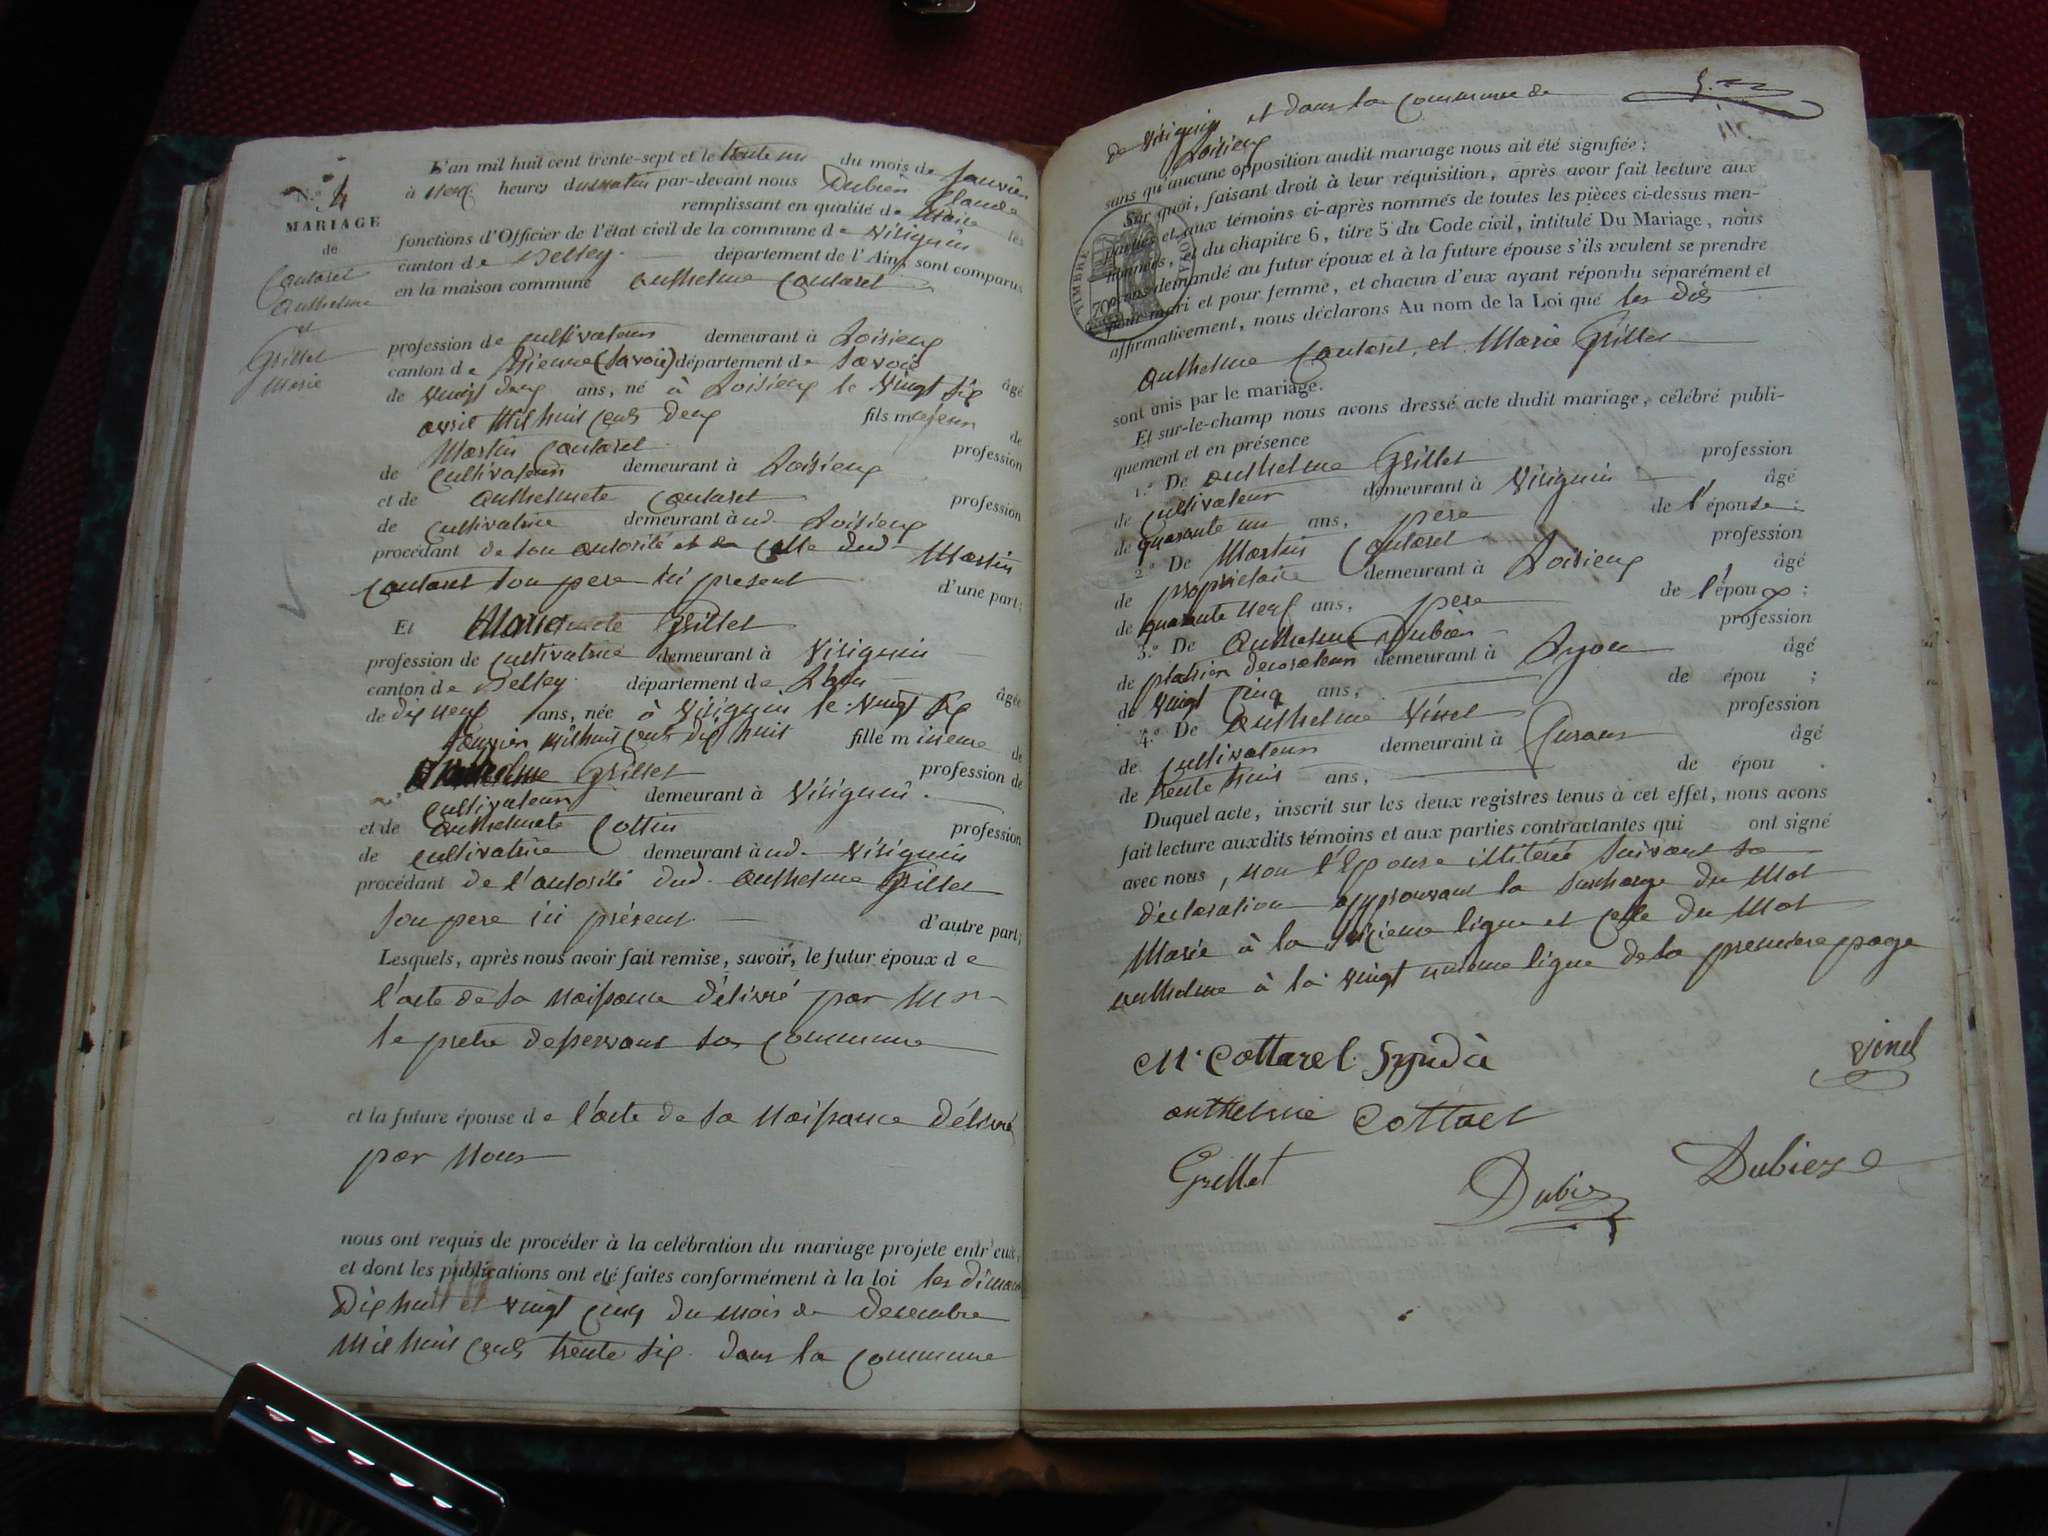 N.o 4
MARIAGE
de
Coutaret
Anthelme
et
Grillet
Marie
L'an mil huit cent trente-sept et le trente un du mois de janvier
à neuf heures du matin par-devant nous Dubien Claude
remplissant en qualité de Maire les
fonctions d'Officier de l'état civil de la commune de Virignin
canton de Belley département de l'Ain, sont comparus
en la maison commune Anthelme Coutaret
profession de cultivateur demeurant à Loisieux
canton de (Savoie) département de Savoie âgé
de vingt deux ans, né à Loisieux le vingt six
avril mil huit cent deux fils majeur de
Martin Coutaret profession
de cultivateur demeurant à Loisieux
et de Anthelmete Coutaret profession
de cultivatrice demeurant à ud. Loisieux
procédant de son autorité et de celle dud. Martin
Coutaret son pere ici present d'une part;
Et Marie Grillet
profession de cultivatrice demeurant à Virignin
canton de Belley département de l'Ain âgée
de dix neuf ans, née à Virignin le vingt six
janvier mil huit cent dix huit fille mineure de
Anthelme Grillet profession de
cultivateur demeurant à Virignin
et de Anthelmete Cottin profession
de cultivatrice demeurant à ud. Virignin
procédant de l'autorité dud. Anthelme Grillet
son pere ici présent d'autre part;
Lesquels, après nous avoir fait remise, savoir, le futur époux de
l'acte de sa naissance délivré par Mr
le pretre desservant sa commune
et la future épouse de l'acte de sa naissance délivré
par nous
nous ont requis de procéder à la celébration du mariage projeté entr'eux,
et dont les publications ont été faites conformément à la loi les
dix huit et vingt cinq du mois de decembre
mil huit cent trente six dans la commune
de Virignin et dans la commune de
Loisieux
sans qu'aucune opposition audit mariage nous ait été signifiée;
Sur quoi, faisant droit à leur réquisition, après avoir fait lecture aux
parties et aux témoins ci-après nommés de toutes les pièces ci-dessus men-
tionnées, et du chapitre 6, titre 5 du Code civil, intitulé Du Mariage, nous
avons demandé au futur époux et à la future épouse s'ils veulent se prendre
pour mari et pour femme, et chacun d'eux ayant répondu séparément et
affirmativement, nous déclarons Au nom de la Loi que les dits
Anthelme Coutaret et Marie Grillet
sont unis par le mariage.
Et sur-le-champ nous avons dressé acte dudit mariage, célébré publi-
quement et en présence
1.o De Anthelme Grillet profession
de cultivateur demeurant à Virignin âgé
de quarante un ans, père de l'épouse;
2.o De Martin Coutaret profession
de propriétaire demeurant à Loisieux âgé
de quarante neuf ans, père de l'époux;
3.o De Anthelme Dubien profession
de platrier decorateur demeurant à Lyon âgé
de vingt cinq ans, de épou ;
4.o De Anthelme Vinel profession
de cultivateur demeurant à âgé
de trente huit ans, de épou .
Duquel acte, inscrit sur les deux registres tenus à cet effet, nous avons
fait lecture auxdits témoins et aux parties contractantes qui ont signé
avec nous, non l'Epouse illitérée suivant sa
déclaration approuvant la surcharge du mot
Marie à la seizieme ligne et celle du mot
anthelme à la vingt unieme ligne de la premiere page
M. Cottarel. Syndic
Vinel
anthelme Cottarel
Grillet
Dubiez
Dubiez
TIMBRE ROYAL
70